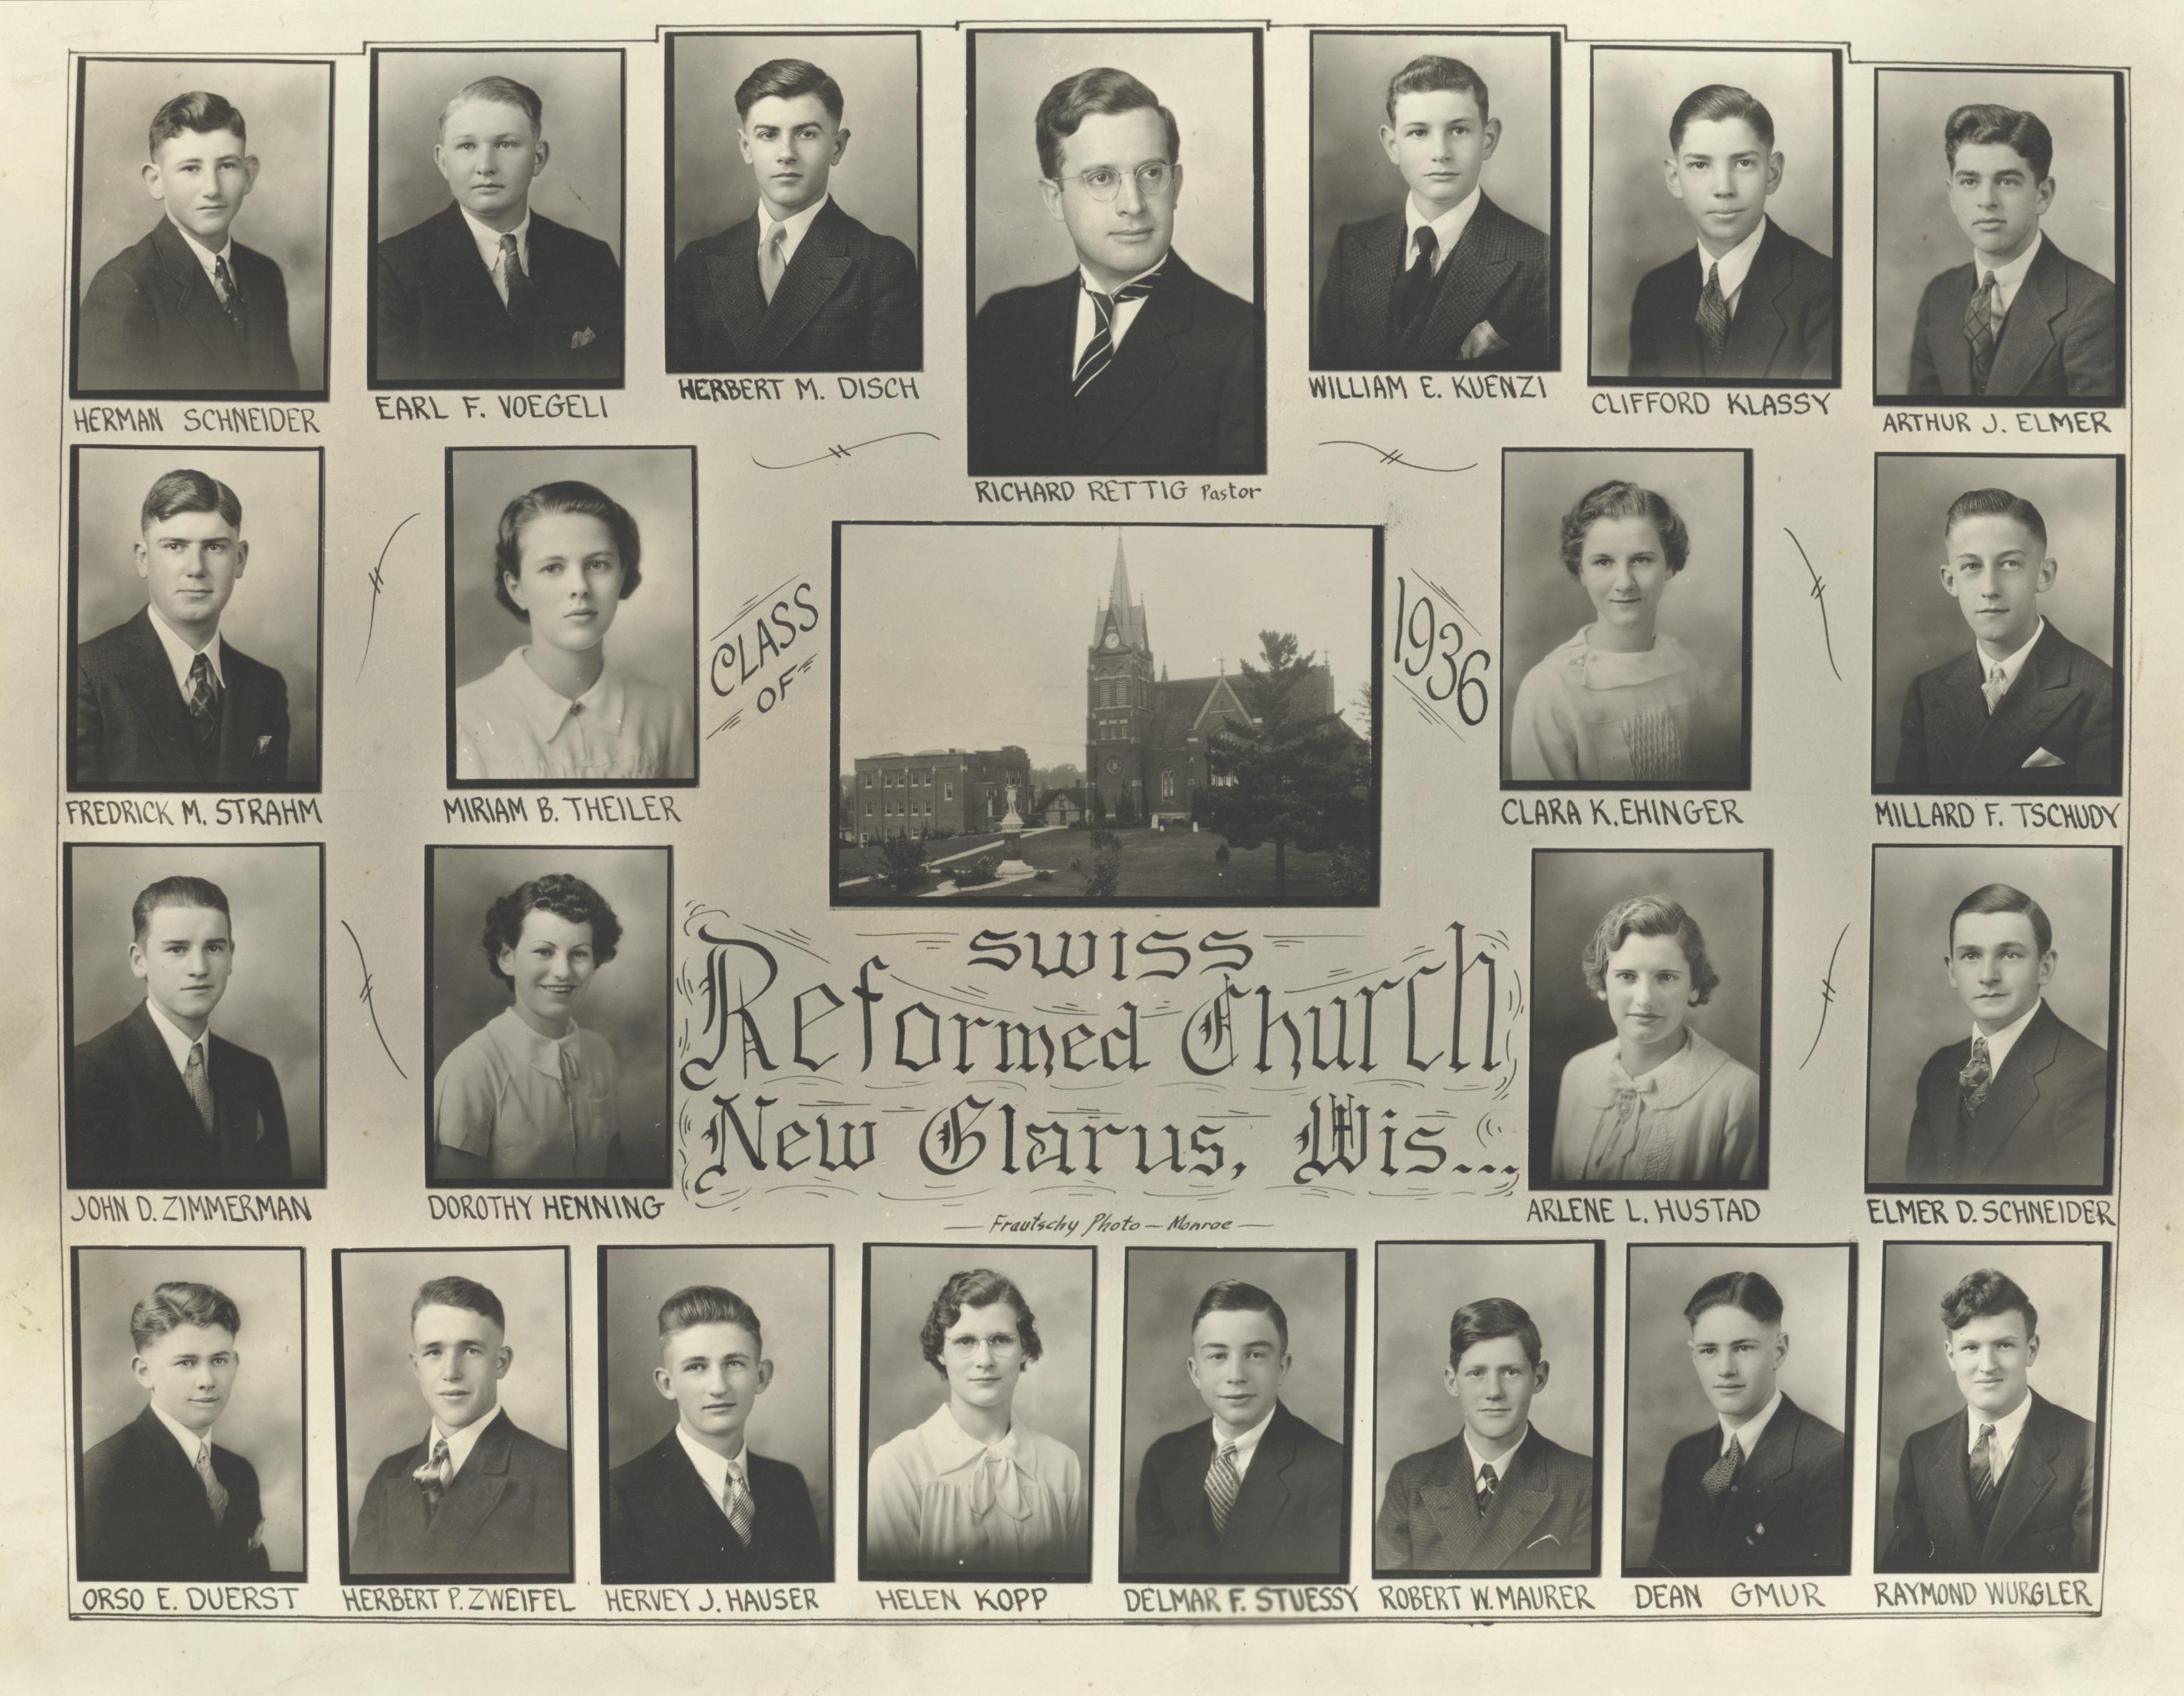 HERMAN SCHNEIDER
EARL F. VOEGELI
HERBERT M. DISCH
RICHARD RETTIG Pastor
WILLIAM E. KUENZI
CLIFFORD KLASSY
ARTHUR J. ELMER
FREDRICK M. STRAHM
MIRIAM B. THEILER
CLASS
OF
1936
CLARA K. EHINGER
MILLARD F. TSCHUDY
JOHN D. ZIMMERMAN
DOROTHY HENNING
SWISS
Reformed Church
New Glarus, Wis...
Frautschy Photo — Monroe
ARLENE L. HUSTAD
ELMER D. SCHNEIDER
ORSO E. DUERST
HERBERT P. ZWEIFEL
HERVEY J. HAUSER
HELEN KOPP
DELMAR F. STUESSY
ROBERT W. MAURER
DEAN GMUR
RAYMOND WURGLER